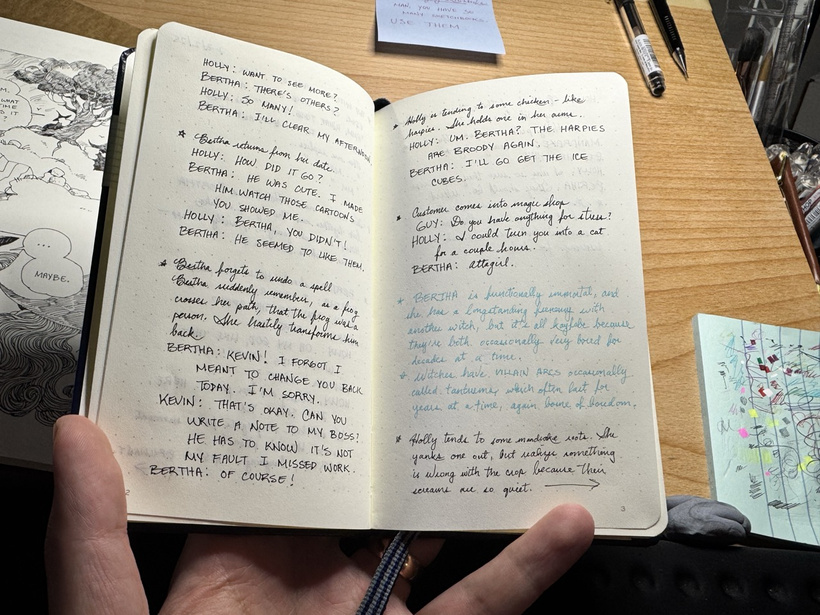 MAN, YOU HAVE SO
MANY SKETCHBOOKS.
USE THEM
WHAT
TIME
IS
IT
MAYBE.
HOLLY: WANT TO SEE MORE?
BERTHA: THERE'S OTHERS?
HOLLY: SO MANY!
BERTHA: I'LL CLEAR MY AFTERNOON
* Bertha returns from her date.
HOLLY: HOW DID IT GO?
BERTHA: HE WAS CUTE. I MADE
HIM WATCH THOSE CARTOONS
YOU SHOWED ME.
HOLLY: BERTHA, YOU DIDN'T!
BERTHA: HE SEEMED TO LIKE THEM.
* Bertha forgets to undo a spell
Bertha suddenly remembers, as a frog
crosses her path, that the frog was a
person. She hastily transforms him
back.
BERTHA: KEVIN! I FORGOT I
MEANT TO CHANGE YOU BACK
TODAY. I'M SORRY.
KEVIN: THAT'S OKAY. CAN YOU
WRITE A NOTE TO MY BOSS?
HE HAS TO KNOW IT'S NOT
MY FAULT I MISSED WORK.
BERTHA: OF COURSE!
2
* Holly is tending to some chicken-like
harpies. She holds one in her arms.
HOLLY: UM. BERTHA? THE HARPIES
ARE BROODY AGAIN.
BERTHA: I'LL GO GET THE ICE
CUBES.
* Customer comes into magic shop
GUY: Do you have anything for stress?
HOLLY: I could turn you into a cat
for a couple hours.
BERTHA: Attagirl.
* BERTHA is functionally immortal, and
she has a longstanding with
another witch, but it's all kayfabe because
they're both occasionally very bored for
decades at a time.
* Witches have VILLAIN ARCS occasionally
called tantrums, which often last for
years at a time, again borne of boredom.
* Holly tends to some mandrake roots. She
yanks one out, but realizes something
is wrong with the crop because their
screams are so quiet. →
3